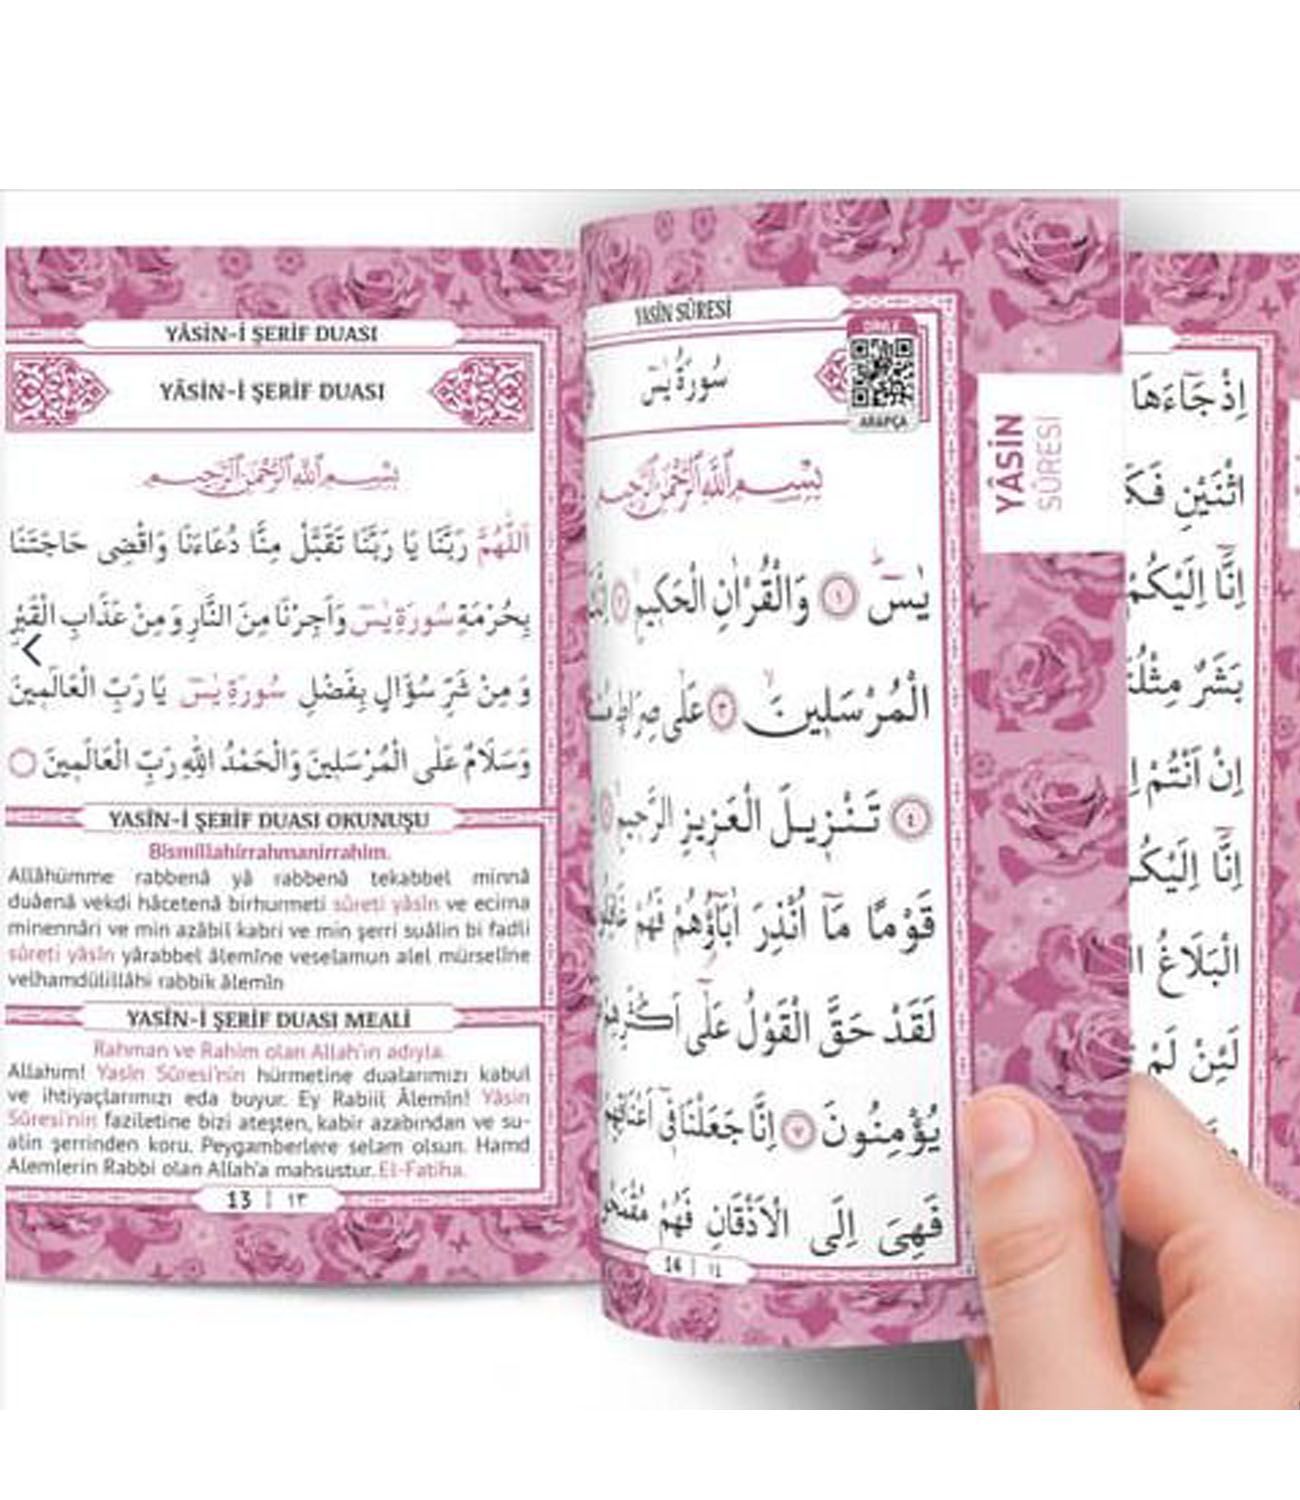 YÂSİN-İ ŞERİF DUASI
YÂSİN-İ ŞERİF DUASI
بِسْمِ اللهِ الرَّحْمٰنِ الرَّحِيمِ
اَللّٰهُمَّ رَبَّنَا يَا رَبَّنَا تَقَبَّلْ مِنَّا دُعَاءَنَا وَاقْضِى حَاجَتَنَا
بِحُرْمَةِ سُورَةِ يٰسٓ وَاَجِرْنَا مِنَ النَّارِ وَمِنْ عَذَابِ الْقَبْرِ
وَمِنْ شَرِّ سُؤَالٍ بِفَضْلِ سُورَةِ يٰسٓ يَا رَبَّ الْعَالَمِينَ
وَسَلَامٌ عَلَى الْمُرْسَلِينَ وَالْحَمْدُ لِلّٰهِ رَبِّ الْعَالَمِينَ
YASİN-İ ŞERİF DUASI OKUNUŞU
Bismillahirrahmanirrahim.
Allâhümme rabbenâ yâ rabbenâ tekabbel minnâ
duâenâ vekdi hâcetenâ birhurmeti sûreti yâsîn ve ecirna
minennâri ve min azâbil kabri ve min şerri suâlin bi fadli
sûreti yâsîn yârabbel âlemîne veselamun alel mürselîne
velhamdülillâhi rabbik âlemîn
YASİN-İ ŞERİF DUASI MEALİ
Rahman ve Rahim olan Allah'ın adıyla.
Allahım! Yasin Sûresi'nin hürmetine dualarımızı kabul
ve ihtiyaçlarımızı eda buyur. Ey Rabiil Âlemîn! Yâsin
Sûresi'nin faziletine bizi ateşten, kabir azabından ve su-
alin şerrinden koru. Peygamberlere selam olsun. Hamd
Alemlerin Rabbi olan Allah'a mahsustur. El-Fatiha.
13 | ١٣
YASİN SÛRESİ
سُورَةُ يٰسٓ
DİNLE
ARAPÇA
بِسْمِ اللهِ الرَّحْمٰنِ الرَّحِيمِ
يٰسٓ ١ وَالْقُرْاٰنِ الْحَكِيمِ ٢
الْمُرْسَلِينَ ٣ عَلٰى صِرَاطٍ
٤ تَنْزِيلَ الْعَزِيزِ الرَّحِيمِ
قَوْمًا مَٓا اُنْذِرَ اٰبَٓاؤُهُمْ فَهُمْ
لَقَدْ حَقَّ الْقَوْلُ عَلٰٓى اَكْثَرِهِمْ
يُؤْمِنُونَ ٧ اِنَّا جَعَلْنَا فٓى اَعْنَاقِهِمْ
فَهِىَ اِلَى الْاَذْقَانِ فَهُمْ مُقْمَحُونَ
14 | ١٤
YÂSİN
SÛRESİ
اِذْجَٓاءَهَا
اثْنَيْنِ
اِنَّٓا اِلَيْكُمْ
بَشَرٌ مِثْلُنَا
اِنْ اَنْتُمْ
اِنَّٓا اِلَيْكُمْ
الْبَلَاغُ
لَئِنْ لَمْ